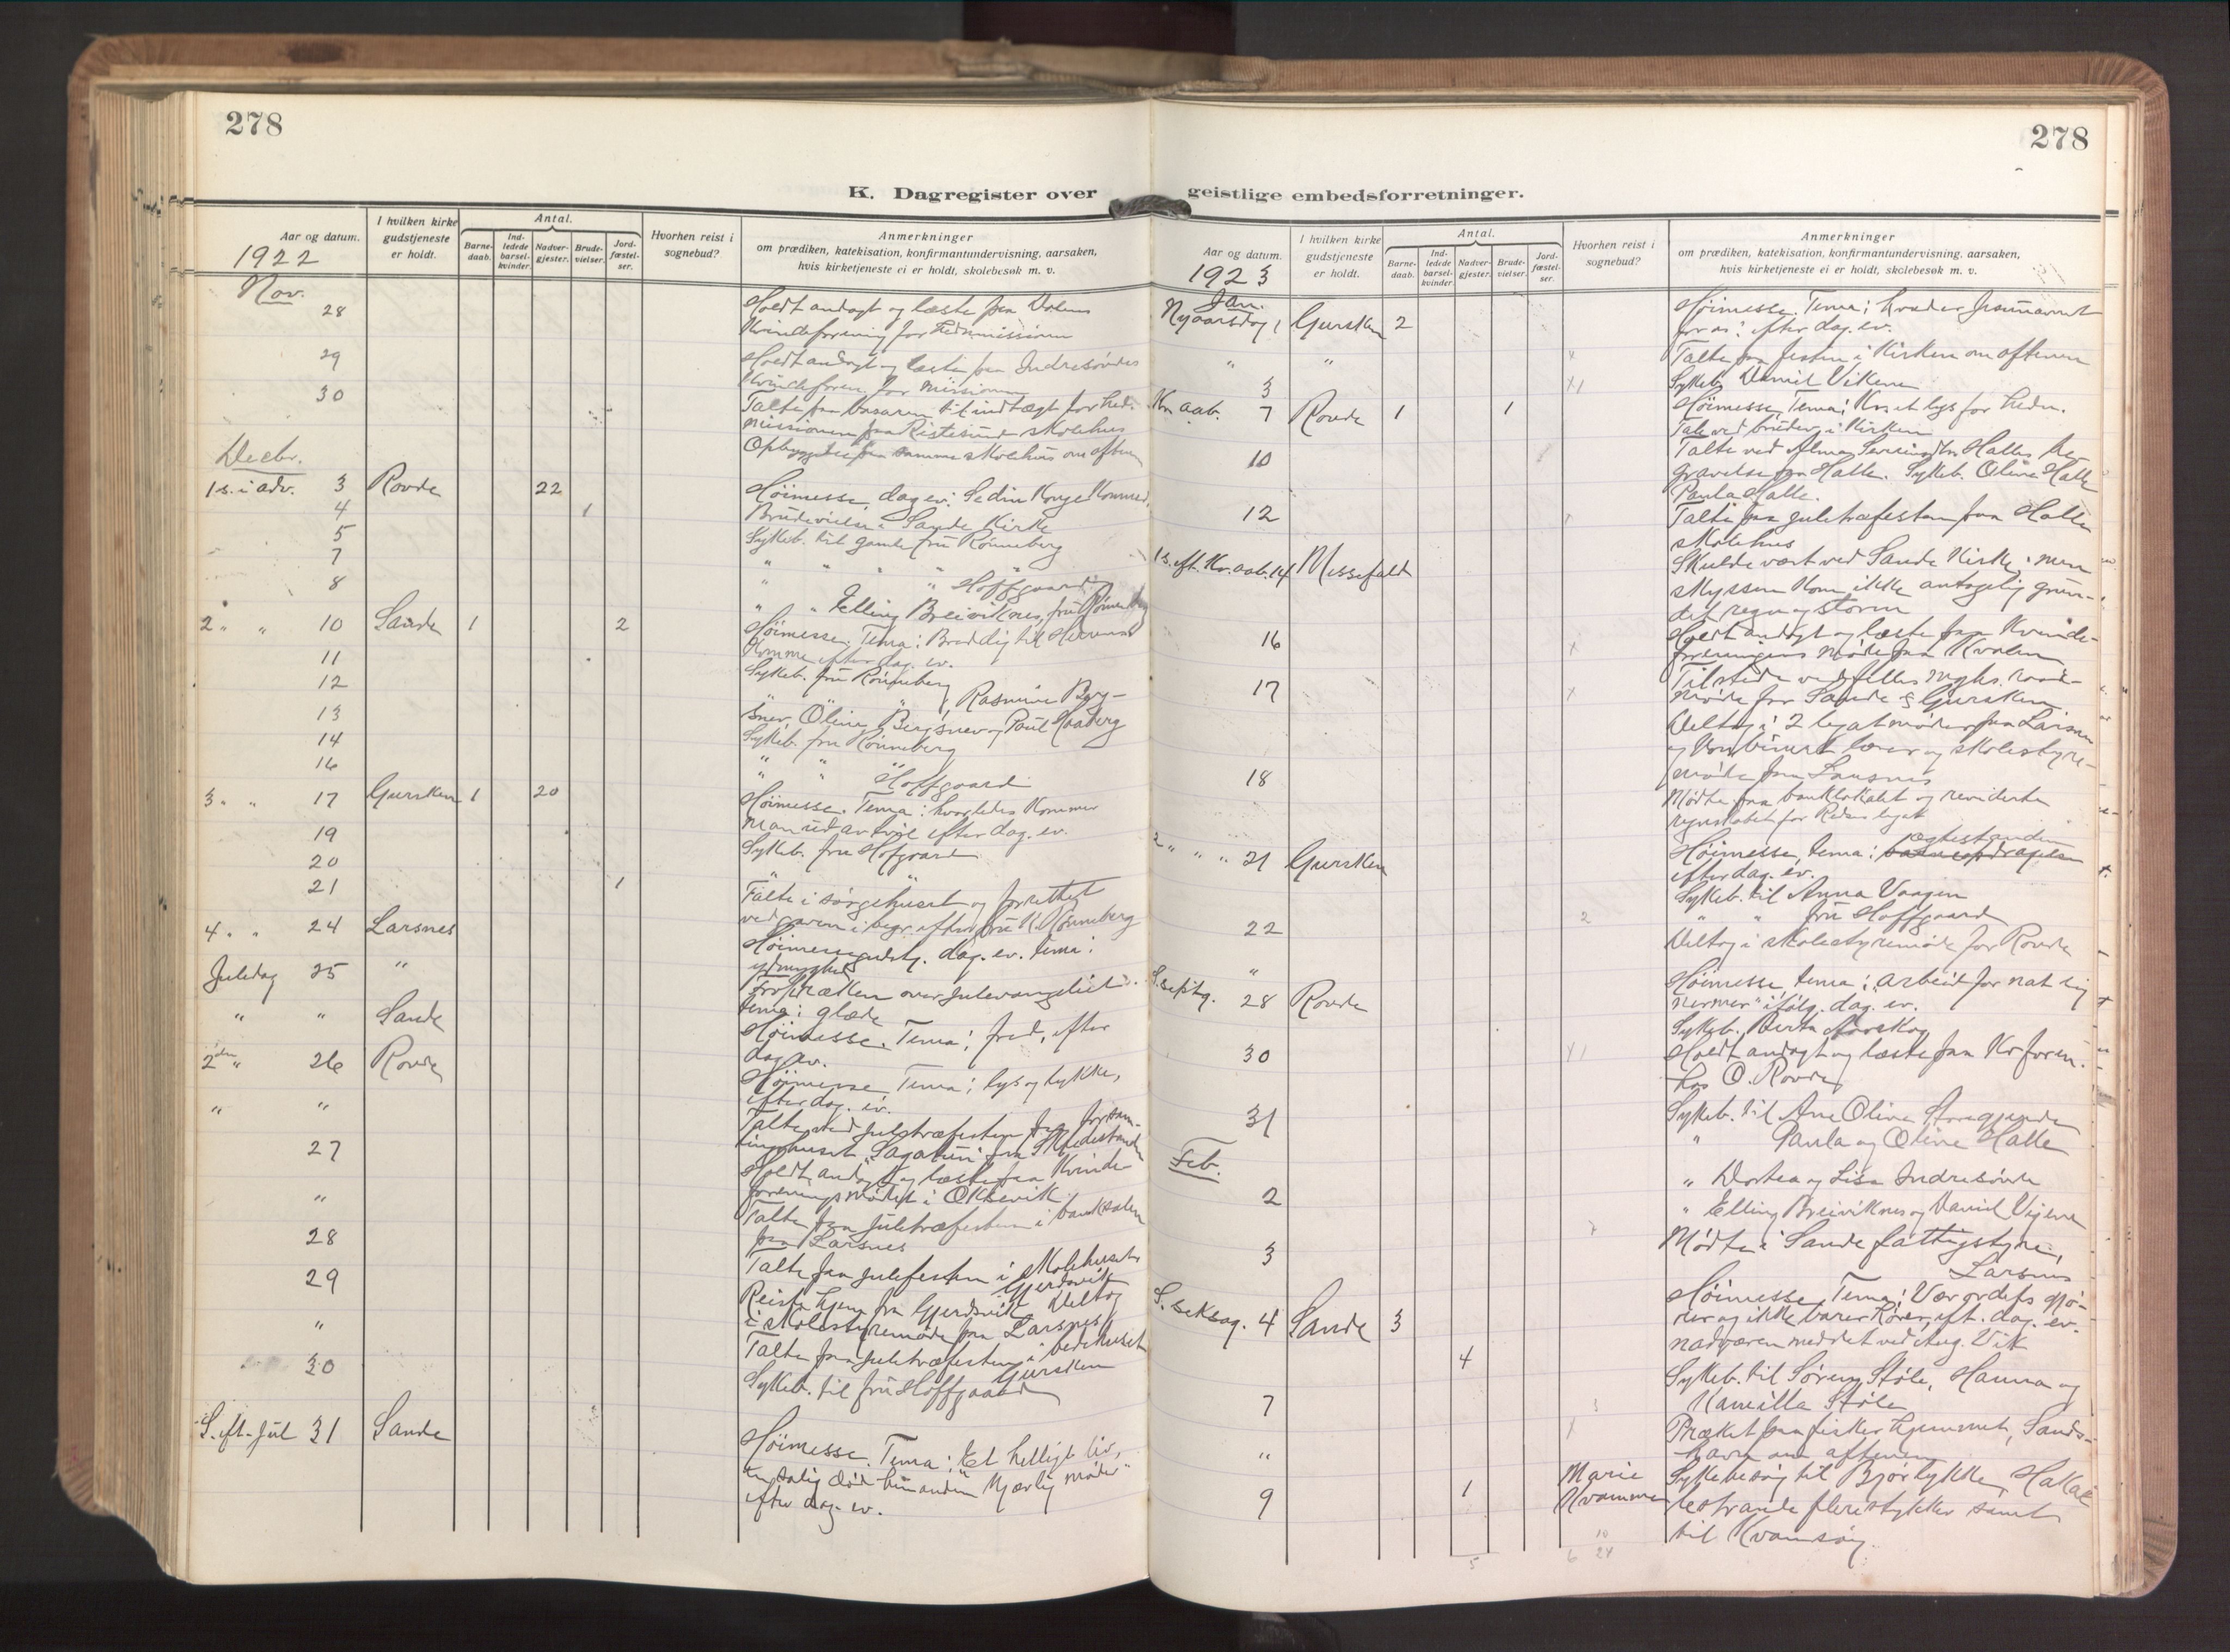 278
K. Dagregister over
Aar og datum.
1922
I hvilken kirke
gudstjeneste
er holdt.
Antal.
Barne-
daab.
Ind-
ledede
barsel-
kvinder.
Nadver-
gjester.
Brude-
vielser.
Jord-
fæstel-
ser.
Hvorhen reist i
sognebud?
Anmerkninger
om prædiken, katekisation, konfirmantundervisning, aarsaken,
hvis kirketjeneste ei er holdt, skolebesøk m. v.
Nov.
28 Holdt andagt og læste paa
Kvindeforening for hedn.missionen
29 Holdt andagt og læste paa Indresøvdes
Kvindeforen. for missionen
30 Talte paa basaren til indtægt for hed.
missionen paa Ristesund skolehus
Opbyggelse paa samme skolehus om aftenen
Decbr.
1 s. i adv. 3 Rovde 22 Høimesse, dag. ev: Se din Konge Kommer
4 1 Brudevielse i Sande Kirke
5 Sykeb. til gamle fru Rønneberg
7 " " " "
8 " " Hoffgaard
" " Elling Breiviknes, fru Rønneberg
2 " " 10 Sande 1 2 Høimesse. Tema: Bered dig til Herrens
Komme efter dag. ev.
11 Sykeb. fru Rønneberg
12 " " ", Rasmine Berg-
snev, Oline Bergsnev og Paul Haaberg
13 Sykeb. fru Rønneberg
14 " " "
16 " " Hoffgaard
3 " " 17 Gursken 1 20 Høimesse. Tema: hvorledes Kommer
man ud av tvil efter dag. ev.
19 Sykeb. fru Hofgaard
20 " "
21 1 Talte i sørgehuset og forrettet
ved graven i begr. efter fru K. Rønneberg
4 " " 24 Larsnes Høimessegudstj. dag. ev. tema:
ydmyghed
Juledag 25 " Froprækен over juleevangeliet.
tema: glæde
" " Sande Høimesse. Tema: fred, efter
dag. ev.
2den " 26 Rovde Høimesse Tema: lys og lykke,
efter dag. ev.
" " Talte ved juletræfesten paa forsam-
lingshuset "Sagatun" paa
27 Holdt andagt og læste paa Kvinde-
foreningsmødet i Oksevik
" Talte paa juletræfesten i banksalen
paa Larsnes
28 Talte paa julefesten i skolehuset
Gjerdsvik
29 Reiste hjem fra Gjerdsvik Deltog
i skolestyremøde paa Larsnes
" Talte paa juletræfesten i bedehuset
Gursken
30 Sykeb. til fru Hoffgaard
S. eft. jul 31 Sande Høimesse. Tema: "Et helligt liv,
en salig død hinanden Kjærlig møder"
efter dag. ev.
278
geistlige embedsforretninger.
Aar og datum.
1923
I hvilken kirke
gudstjeneste
er holdt.
Antal.
Barne-
daab.
Ind-
ledede
barsel-
kvinder.
Nadver-
gjester.
Brude-
vielser.
Jord-
fæstel-
ser.
Hvorhen reist i
sognebud?
Anmerkninger
om prædiken, katekisation, konfirmantundervisning, aarsaken,
hvis kirketjeneste ei er holdt, skolebesøk m. v.
Jan.
Nyaarsdag 1 Gursken 2 Høimesse. Tema: hvad er Jesunavnet
for os? efter dag. ev.
" " Talte paa festen i Kirken om aftenen
3 Sykeb. Daniel Vikene
Kr. aab. 7 Rovde 1 1 Høimesse, Tema: Kr. et lys for hedn.
Tale ved bruden i Kirken
10 Talte ved Halles be-
gravelse paa Halle. Sykeb. Oline Halle
Paula Halle.
12 Talte paa juletræfesten paa Halle
skolehus
1 s. eft. Kr. aab. 14 Messefald Skulde vært ved Sande Kirke, men
skyssen kom ikke antagelig grun-
det regn og storm
16 Holdt andagt og læste paa Kvinde-
foreningens møde paa Kvalen
17 Tilstede ved felles mghs. raad-
møde for Sande & Gursken.
Deltog i 2 legatmøder paa Larsnes
og Kombinert lærer og skolestyre-
møde paa Larsnes
18 Mødte paa banklokalet og reviderte
regnskabet for legat
2 " " " 21 Gursken Høimesse, tema: ægtestanden
efter dag. ev.
Sykeb. til Anna Vaagen
22 2 " " fru Hoffgaard
" Deltog i skolestyremøde for Rovde
S. septg. 28 Rovde Høimesse, tema: "arbeid for nat sig
nermer" ifølg. dag. ev.
Sykeb. Berta Aarskog
30 Holdt andagt og læste paa Kv.foren.
hos O. Rovde
31 Sykeb. til Ane Oline
" Paula og Oline Halle
Feb.
2 " Dortea og Lisa Indresøvde
" Elling Breiviknes og Daniel Vigene
3 Mødte i Sande fattigstyre,
Larsnes
S. seksag. 4 Sande 3 Høimesse Tema: Vær ordets gjø-
rer og ikke barer hører, eft. dag. ev.
4 nadværen meddelt ved Aug. Vik
7 Sykeb. til Søren Støle, Hanna og
Kamilla Støle
" Præket paa fisker hjemmet, Sands-
havn om aftenen
9 1 Marie
Kvamme Sykebesøg til Bjørlykke, Hakal-
lestrande flere stykker samt
til Kvamsøy.
5 6 10
24